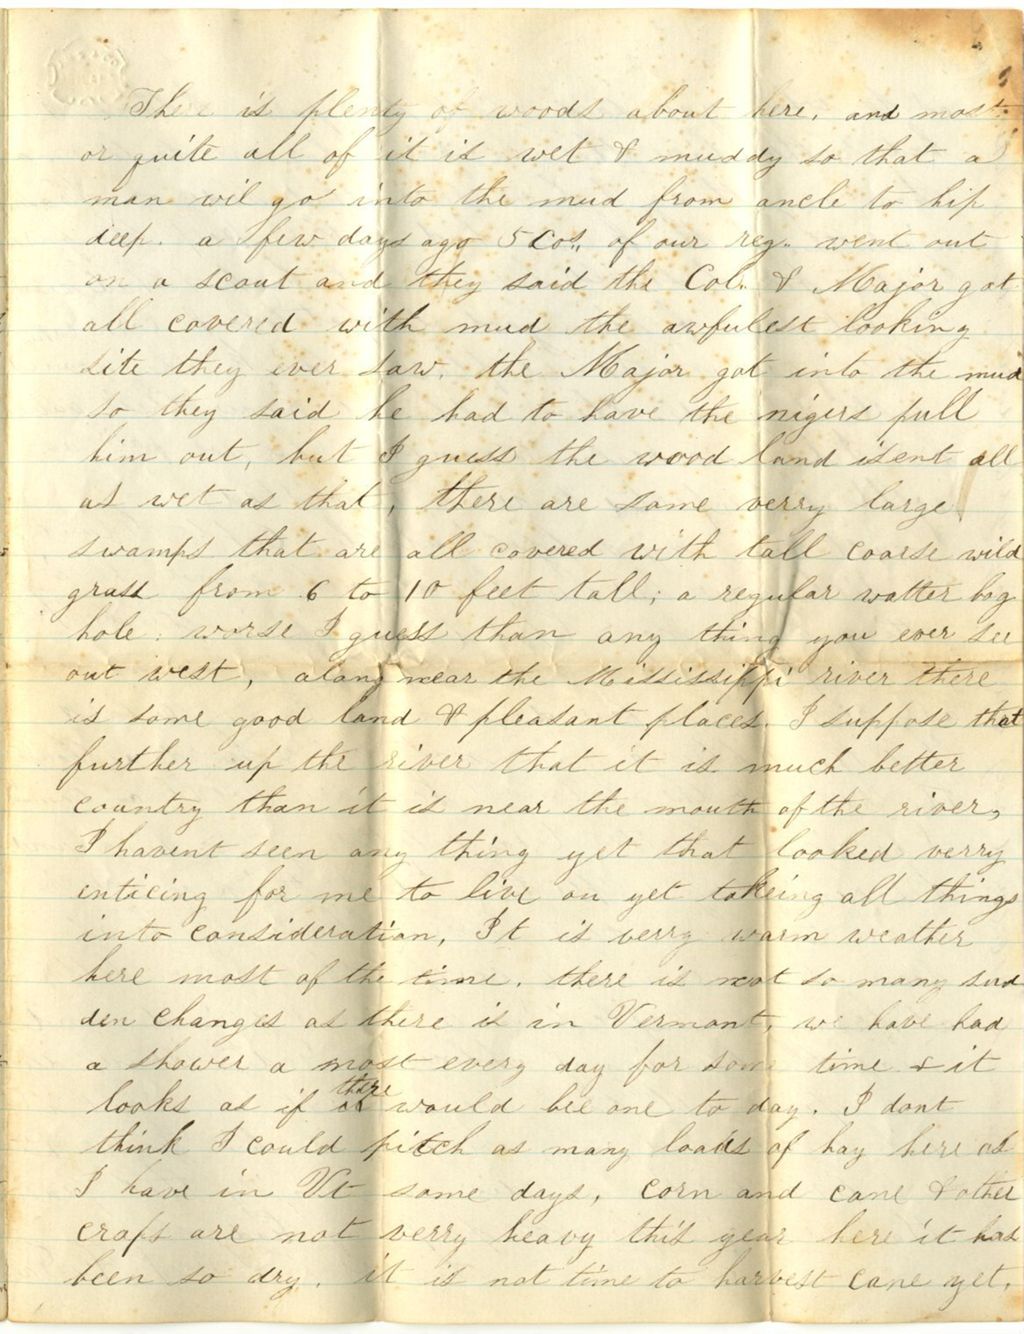 There is plenty of woods about here, and most
or quite all of it is wet & muddy so that a
man wil go into the mud from ancle to hip
deep. a few days ago 5 Cos., of our reg. went out
on a scout and they said the Col. & Major got
all covered with mud the awfulest looking
site they ever saw. the Major got into the mud
so they said he had to have the nigers pull
him out, but I guess the wood land isent all
as wet as that, there are some verry large
swamps that are all covered with tall coarse wild
grass from 6 to 10 feet tall; a regular watter bog
hole. worse I guess than any thing you ever see
out west, along near the Mississippi river there
is some good land & pleasant places. I suppose that
further up the river that it is much better
country than it is near the mouth of the river,
I havent seen any thing yet that looked verry
enticing for me to live on yet takeing all things
into consideration, It is verry warm weather
here most of the time. there is not so many sud
den changes as there is in Vermont, we have had
a shower a most every day for some time & it
looks as if there would bee one to day. I dont
think I could pitch as many loads of hay here as
I have in Vt some days, corn and cane & other
crops are not verry heavy this year here it has
been so dry. it is not time to harvest cane yet.